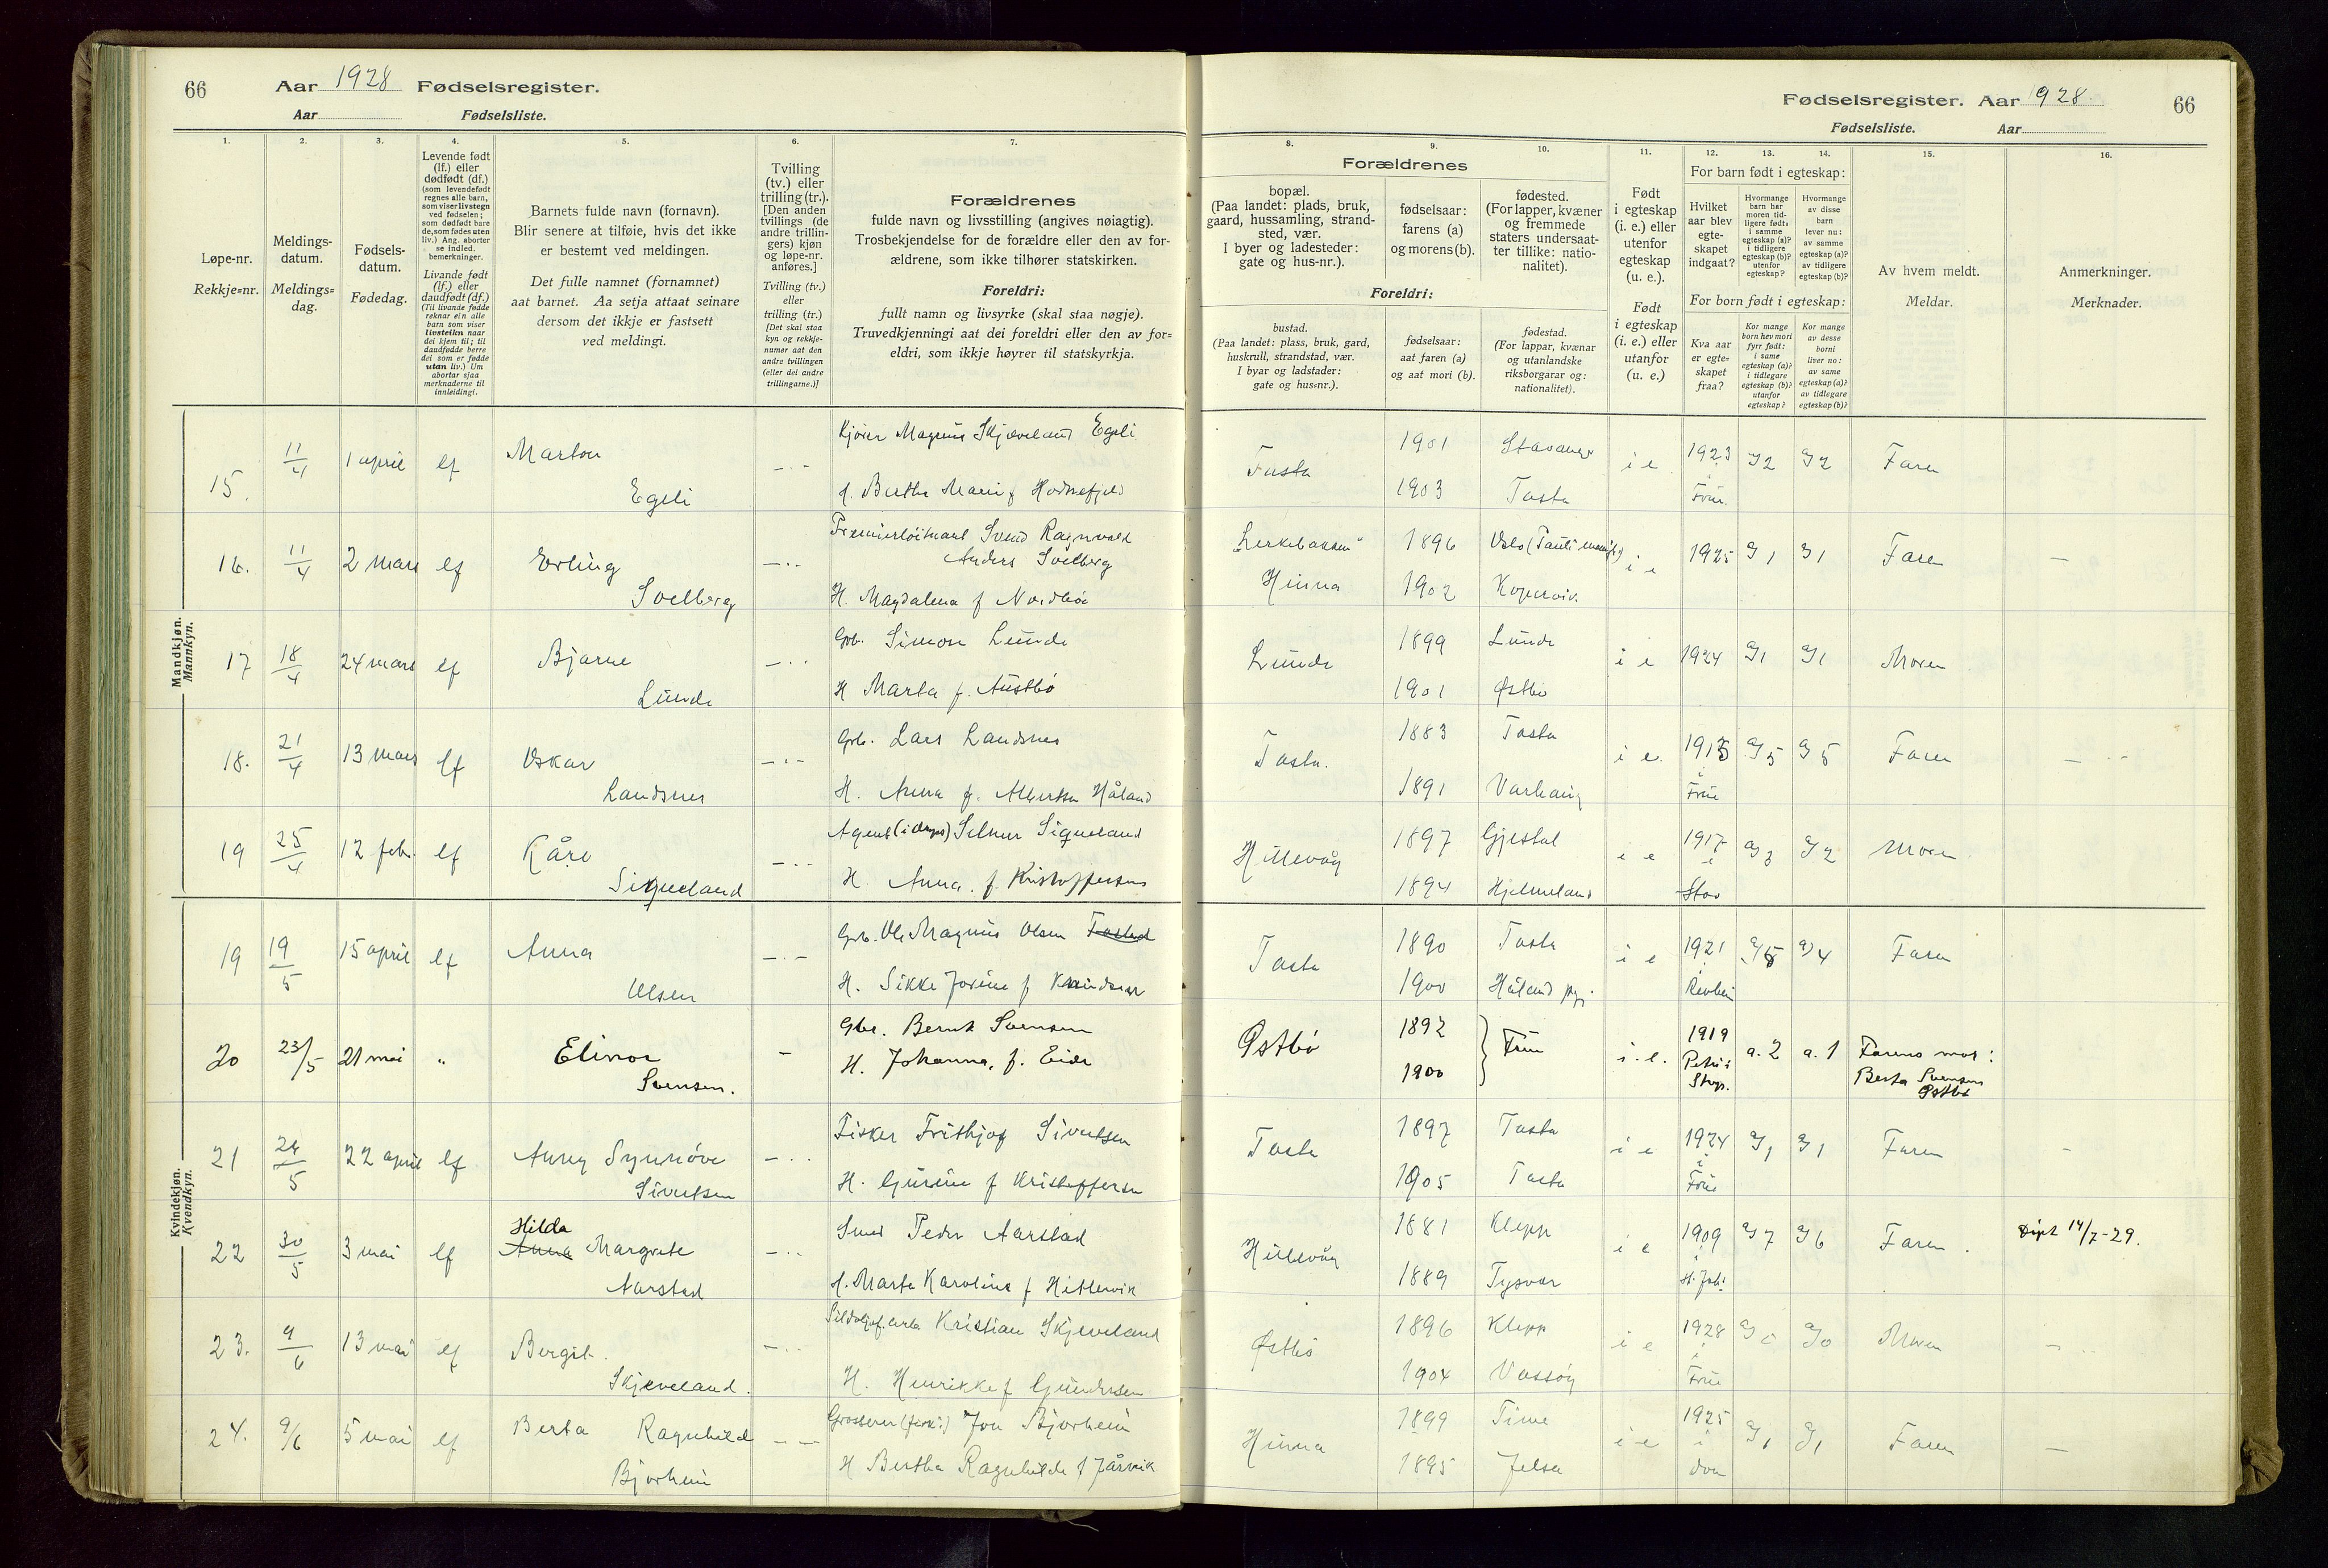 66
Aar 1928 Fødselsregister.
Aar Fødselsliste.
Fødselsregister. Aar 1928.
66
Fødselsliste. Aar
1.
Løpe-nr.
Rekkje-nr.
2.
Meldings-
datum.
Meldings-
dag.
3.
Fødsels-
datum.
Fødedag.
4.
Levende født
(lf.) eller
dødfødt (df.)
(som levendefødt
regnes alle barn,
som viser livstegn
ved fødselen;
som dødfødt bare
de, som fødes uten
liv.) Ang. aborter
se indled.
bemerkninger.
Livande født
(lf.) eller
daudfødt (df.)
(Til livande fødde
reknar ein alle
barn som viser
livsteikn naar
dei kjem til; til
daudfødde berre
dei som er fødde
utan liv.) Um
abortar sjaa
merknaderne til
innleidingi.
5.
Barnets fulde navn (fornavn).
Blir senere at tilføie, hvis det ikke
er bestemt ved meldingen.
Det fulle namnet (fornamnet)
aat barnet. Aa setja attaat seinare
dersom det ikkje er fastsett
ved meldingi.
6.
Tvilling
(tv.) eller
trilling (tr.).
[Den anden
tvillings (de
andre trillin-
gers) kjøn
og løpe-nr.
anføres.]
Tvilling (tv.)
eller
trilling (tr.)
[Det skal staa
kyn og rekkje-
numer aat den
andre tvillingen
(eller dei andre
trillingarne.)]
7.
Forældrenes
fulde navn og livsstilling (angives nøiagtig).
Trosbekjendelse for de forældre eller den av for-
ældrene, som ikke tilhører statskirken.
Foreldri:
fullt namn og livsyrke (skal staa nøgje).
Truvedkjenningi aat dei foreldri eller den av for-
eldri, som ikkje høyrer til statskyrkja.
8.
Forældrenes
bopæl.
(Paa landet: plads, bruk,
gaard, hussamling, strand-
sted, vær.
I byer og ladesteder:
gate og hus-nr.).
Foreldri:
bustad.
(Paa landet: plass, bruk, gard,
huskrull, strandstad, vær.
I byar og ladstader:
gate og hus-nr.).
9.
fødselsaar:
farens (a)
og morens (b).
fødselsaar:
aat faren (a)
og aat mori (b).
10.
fødested.
(For lapper, kvæner
og fremmede
staters undersaat-
ter tillike: natio-
nalitet).
fødestad.
(For lappar, kvænar
og utanlandske
riksborgarar og:
nationalitet).
11.
Født
i egteskap
(i. e.) eller
utenfor
egteskap
(u. e.).
Født
i egteskap
(i. e.) eller
utanfor
(u. e.)
12. 13. 14.
For barn født i egteskap:
Hvilket
aar blev
egte-
skapet
indgaat?
Hvormange
barn har
moren tid-
ligere født:
i samme
egteskap (a)?
i tidligere
egteskap (b)?
utenfor
egteskap?
Hvormange
av disse
barn
lever nu:
av samme
egteskap (a)?
av tidligere
egteskap (b)?
For born født i egteskap:
Kva aar
er egte-
skapet
fraa?
Kor mange
born hev mori
fyrr født:
i same
egteskap (a)?
i tidlegare
egteskap (b)?
utanfor
egteskap?
Kor mange
av desse
borni
liver no:
av same
egteskap (a)?
av tidlegare
egteskap (b)?
15.
Av hvem meldt.
Meldar.
16.
Anmerkninger.
Merknader.
Mandkjøn.
Mannkyn.
15. 11/4 1 april lf Marton Egeli
Magnus Skjæveland Egeli
H. Berthe Marie f Hodnefjeld
Tasta 1901 Stavanger i e 1923 i Frue a/2 a/2 Faren
1903 Tasta
16. 11/4 2 mars lf Erling Solberg
Premierløitnant Svend Ragnvald
Anders Solberg
H. Magdalena f Nordbø
Hinna 1896 Oslo i e 1925 a/1 a/1 Faren —
1902 Kopervik
17 18/4 24 mars lf Bjarne Lunde
Gbr. Simon Lunde
H Marta f. Austbø
Lunde 1899 Lunde i e 1924 a/1 a/1 Moren
1901 Østbø
18. 21/4 13 mars lf Oskar Landsnes
Gbr. Lars Landsnes
H. Anna f. Albertsen Håland
Tasta. 1883 Tasta i e. 1913 i Frue a/5 a/5 Faren
1891 Varhaug
19 25/4 12 feb. lf Kåre Siqveland
Agent Selmer Siqveland
H. Anna. f. Kristoffersen
Hillevåg 1897 Gjestal i e 1917 i Stav a/3 a/2 Moren
1894 Hjelmeland
Kvindekjøn.
Kvendkyn.
19 19/5 15 april lf Anna Olsen
Gbr. Ole Magnus Olsen
H. Sikke Jorine f Knudsen
Tasta 1890 Tasta i e 1921 a/5 a/4 Faren
1900 Håland
20 23/5 21 mai " Elinor Svensen.
Gbr. Bernt Svensen
H. Johanna, f. Eide
Østbø 1892 Frue i. e. 1919 Petri i Stvgr. a. 2 a. 1 Farens mor:
1900 Berta Svensen Østbø
21 24/5 22 april lf Anny Synnöve Sivertsen
Fisker Frithjof Sivertsen
H. Gurine f Kristoffersen
Tasta 1897 Tasta i e 1924 i Frue a/1 a/1 Faren
1905 Tasta
22 30/5 3 mai lf Hilda
Anna Margrete Aarstad
Smed Peder Aarstad
H. Marta Karoline f Hettervik
Hillevåg 1881 Klepp i e 1909 i a/7 a/6 Faren. Døpt 14/7-29.
1889 Tysvær
23. 9/6 13 mai lf Bergit Skjeveland.
Kristian Skjeveland
H. Henrikke f Gundersen
Østbø 1896 Klepp i e 1928 i Frue a/0 a/0 Moren
1904 Vassøy
24. 9/6 5 mai lf Berta Ragnhild Bjorheim
Grosserer Jon Bjorheim
H Bertha Ragnhilda f Jårvik
Hinna 1899 Time i e 1925 i a/1 a/1 Faren —
1895 Jelsa